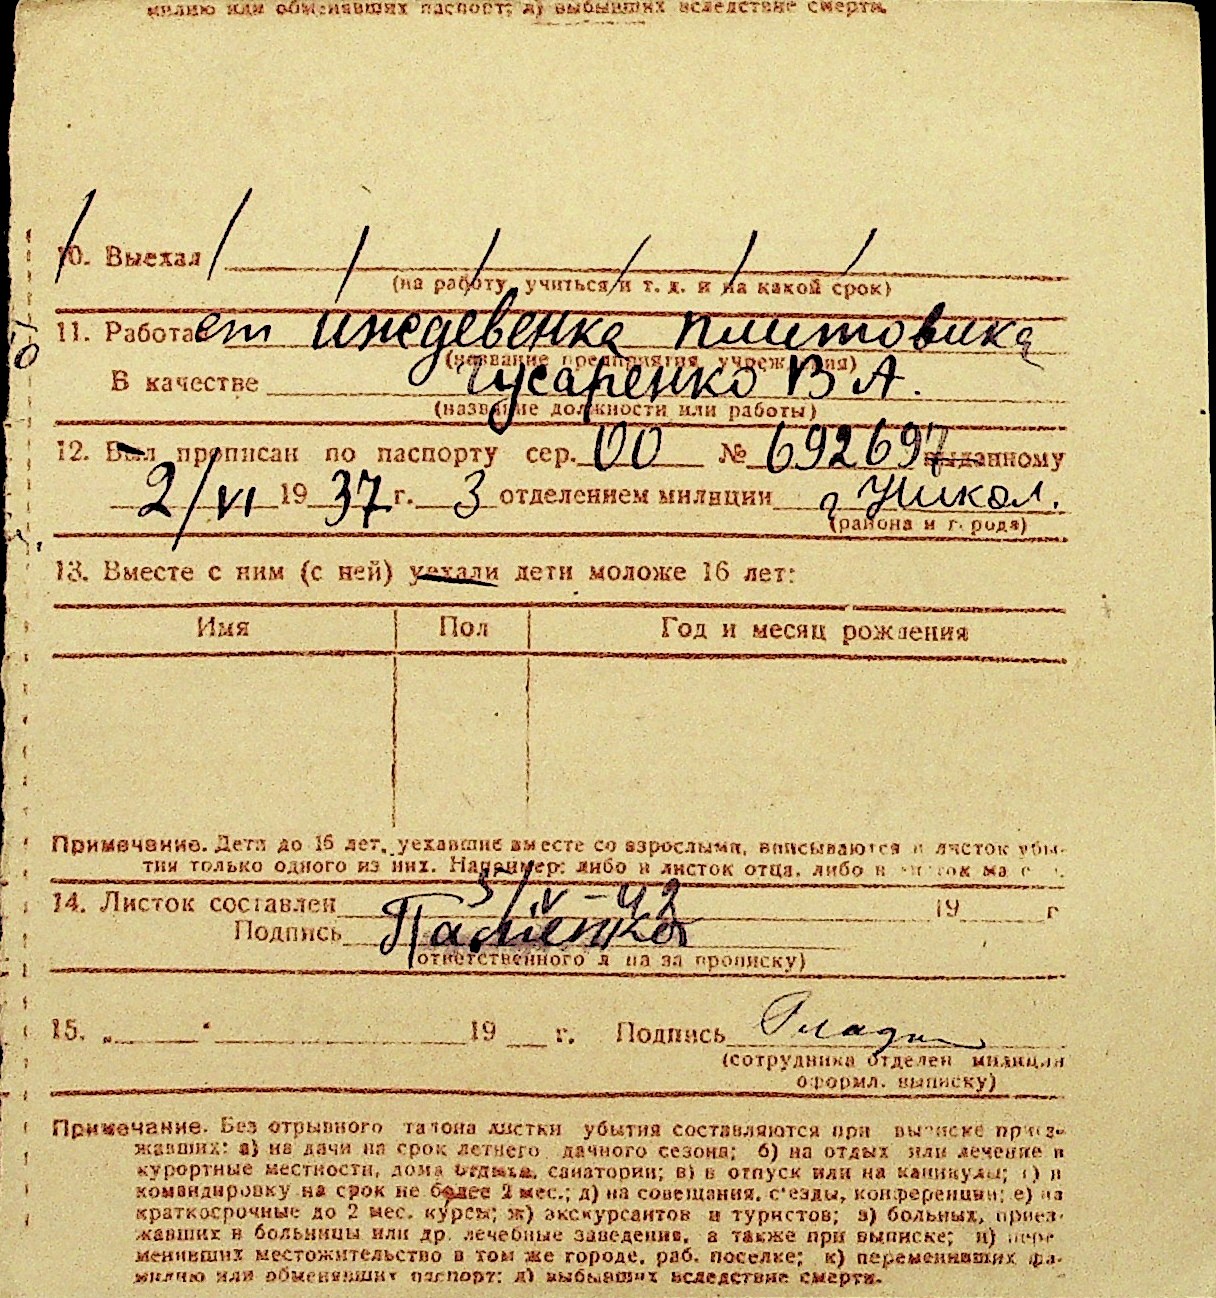 милию или обменявших паспорт; л) выбывших вследствие смерти.
10. Выехал
(на работу, учиться и т. д. и на какой срок)
11. Работает иждевенка плитовика
(название предприятия, учреждения)
В качестве Гусаренко В А.
(название должности или работы)
12. Был прописан по паспорту сер. 00 № 692697 выданному
2/VI 1937 г. 3 отделением милиции г Никол.
(района и города)
13. Вместе с ним (с ней) уехали дети моложе 16 лет:
Имя Пол Год и месяц рождения
Примечание. Дети до 16 лет, уехавшие вместе со взрослыми, вписываются в листок убы-
тия только одного из них. Например: либо в листок отца, либо в листок ма
14. Листок составлен 5/IV-42 19 г
Подпись
(ответственного лица за прописку)
15. „ " 19 г. Подпись
(сотрудника отделен милиции
оформл. выписку)
Примечание. Без отрывного талона листки убытия составляются при выписке приез-
жавших: а) на дачи на срок летнего дачного сезона; б) на отдых или лечение в
курортные местности, дома отдыха, санатории; в) в отпуск или на каникулы; г) в
командировку на срок не более 2 мес.; д) на совещания, с'езды, конференции; е) на
краткосрочные до 2 мес. курсы; ж) экскурсантов и туристов; з) больных, приез-
жавших в больницы или др. лечебные заведения, а также при выписке; и) пере
менивших местожительство в том же городе, раб. поселке; к) переменивших фа-
милию или обменявших паспорт; л) выбывших вследствие смерти.